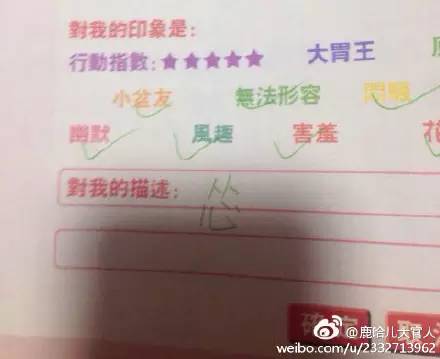 對我的印象是:
行動指數:★★★★★ 大胃王
小盆友 無法形容
幽默 風趣 害羞 花
對我的描述: 怂
確定 取
@鹿哈儿大官人
weibo.com/u/2332713962